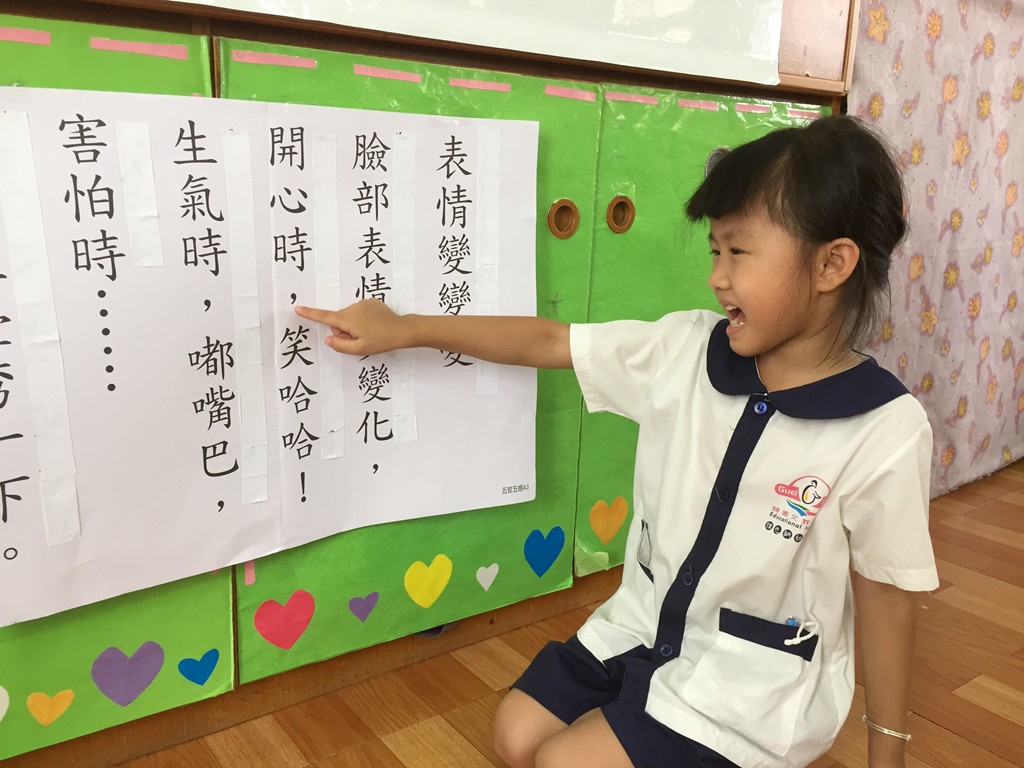 表情變變變
臉部表情變化，
開心時，笑哈哈！
生氣時，嘟嘴巴，
害怕時……
一下。
五官五感A3
Guei
Educational